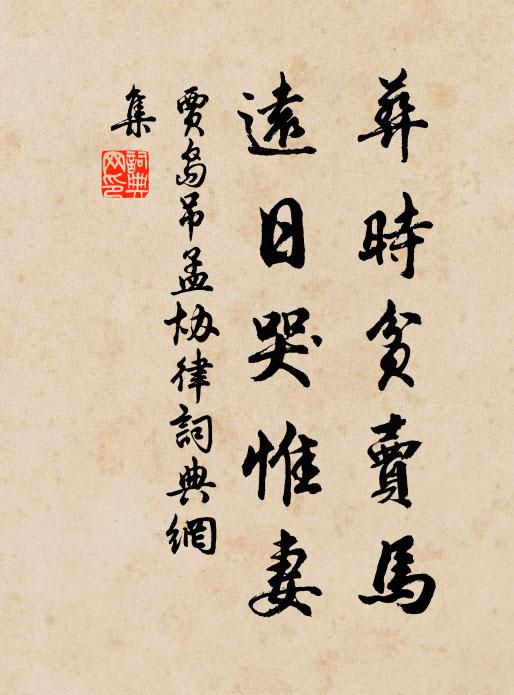 葬時貧賣馬
遠日哭惟妻
賈島吊孟協律詞典網
集
詞典
网印